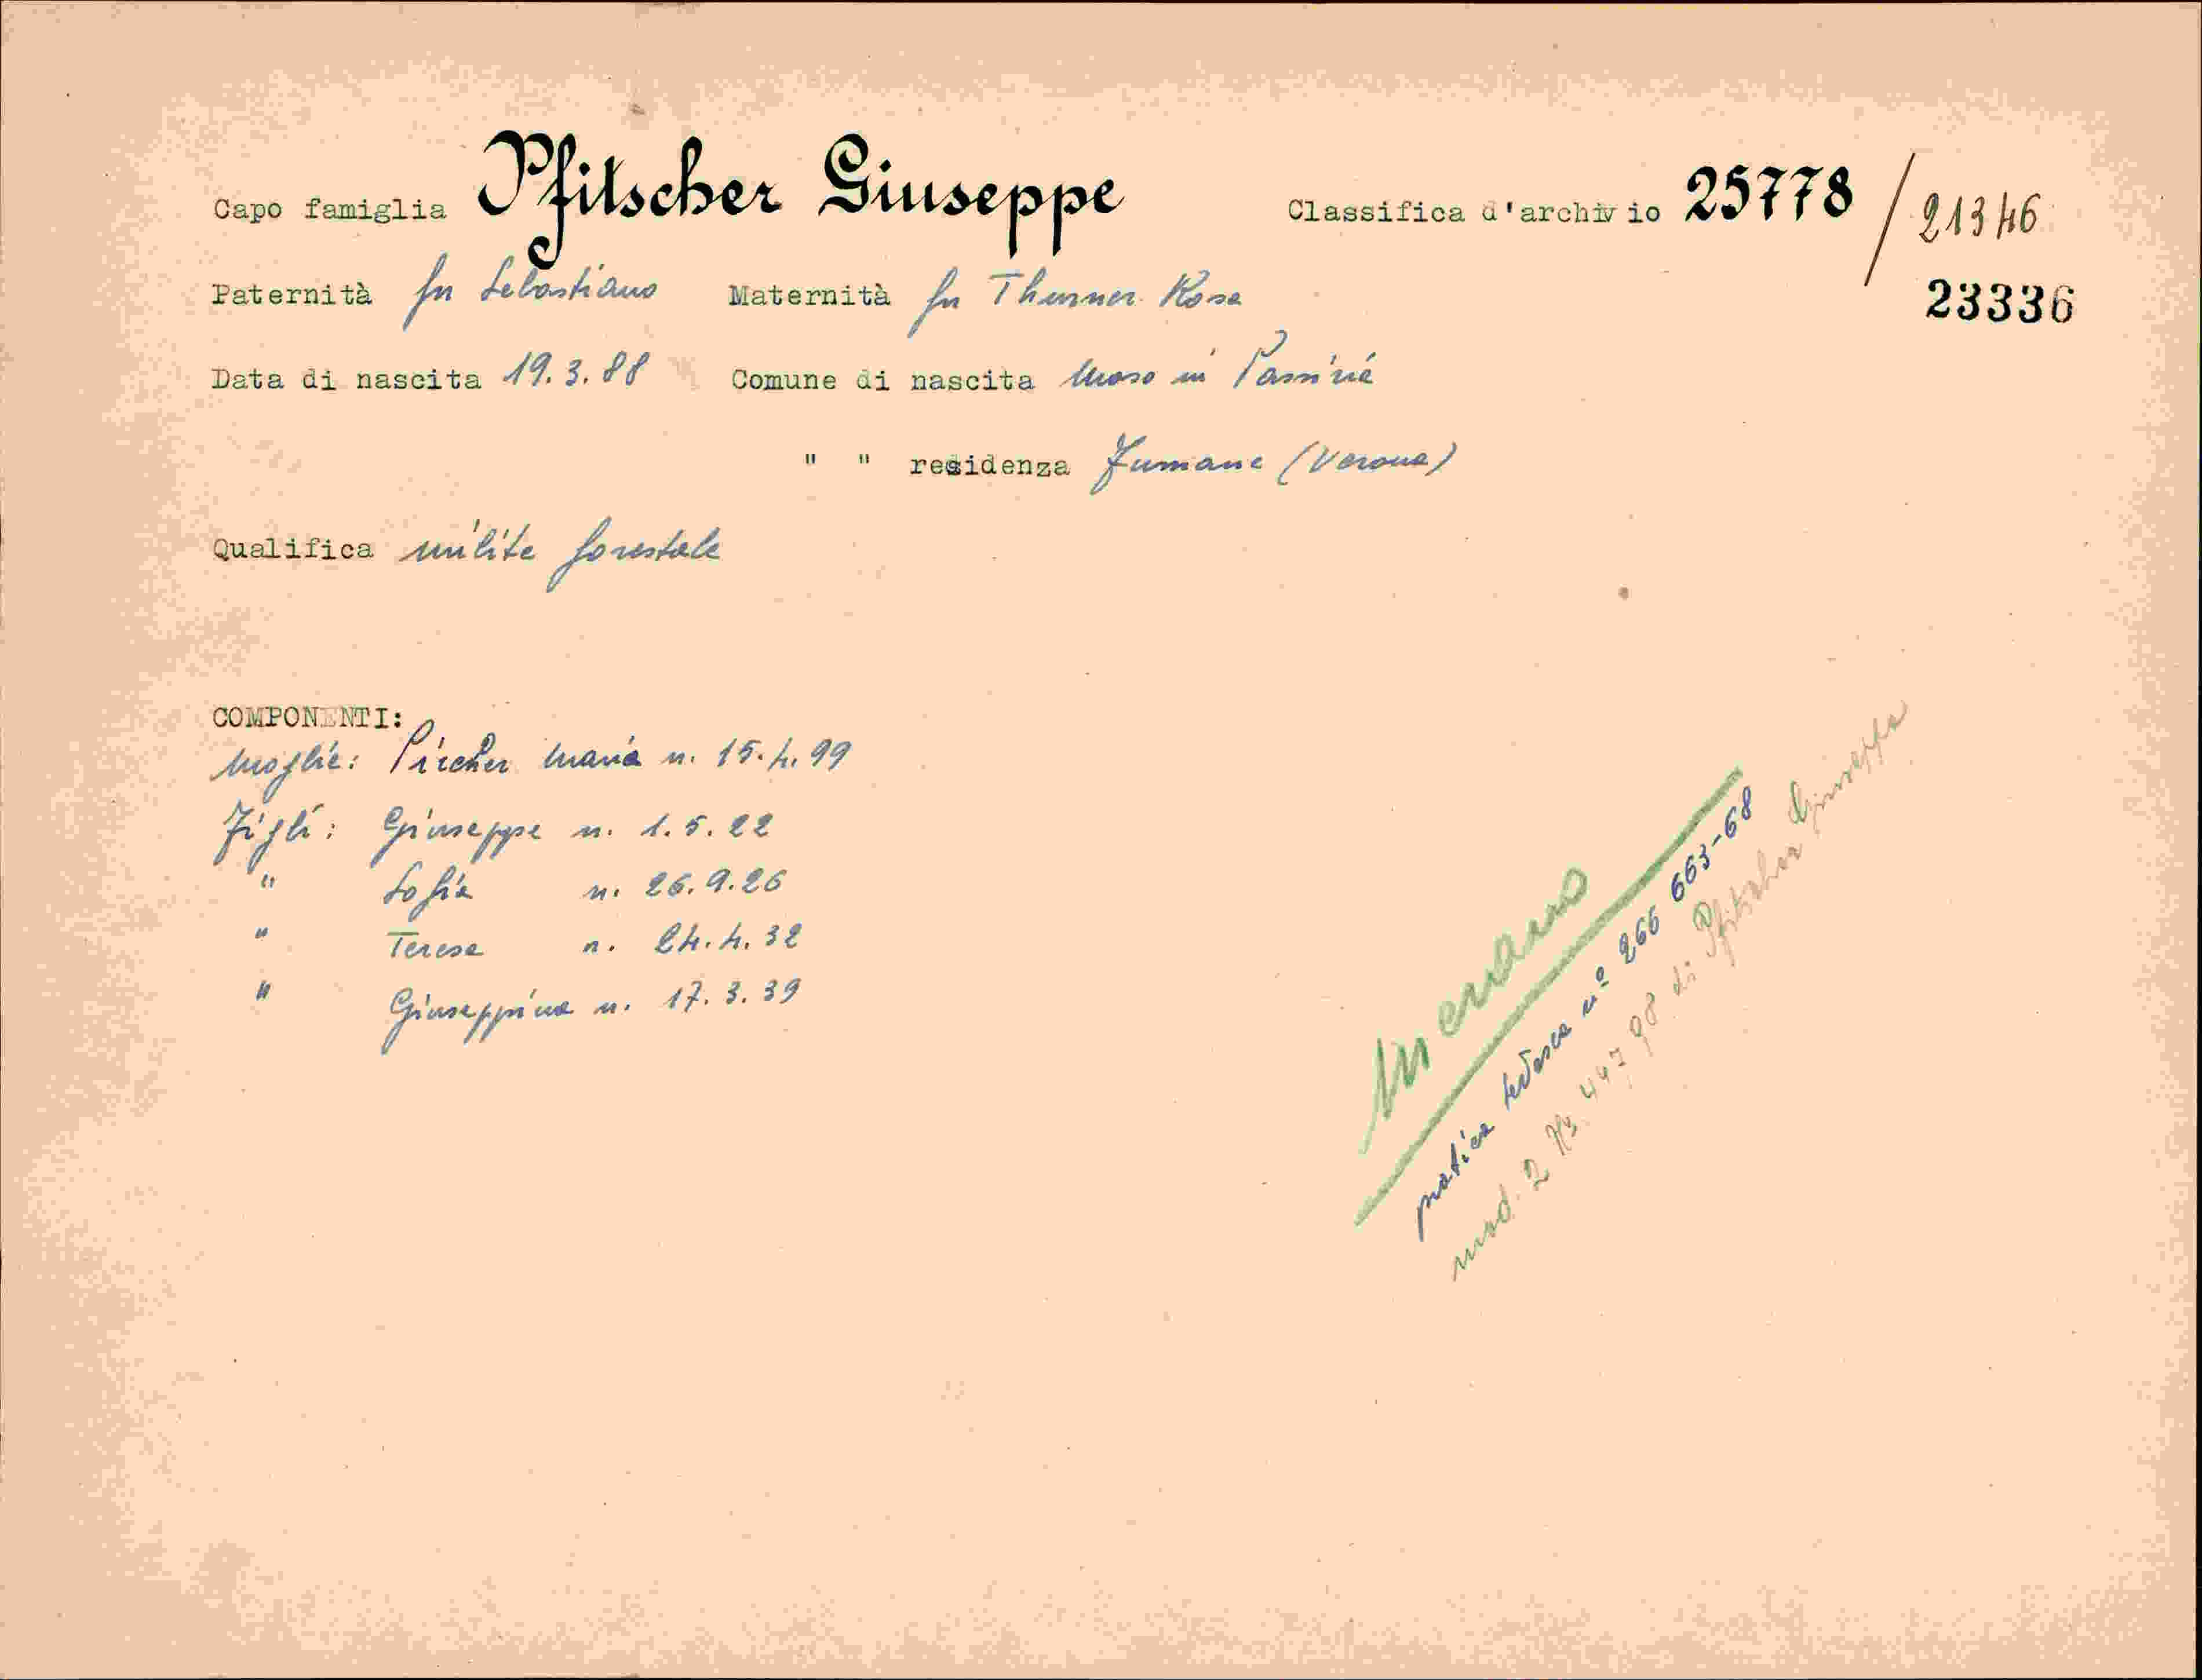 Capo famiglia Pfitscher Giuseppe Classifica d'archivio 25778 / 21346
23336
Paternità fu Sebastiano Maternità fu Thurner Rosa
Data di nascita 19.3.88 Comune di nascita Moso in Passiria
" " residenza Fumane (Verona)
Qualifica milite forestale
COMPONENTI:
Moglie: Pircher Maria n. 15.4.99
Figli: Giuseppe n. 1.5.22
" Sofia n. 26.9.26
" Teresa n. 24.4.32
" Giuseppina n. 17.3.39
Merano
pratica tedesca n° 266 663-68
mod. 2 447 98 di Pfitscher Giuseppe